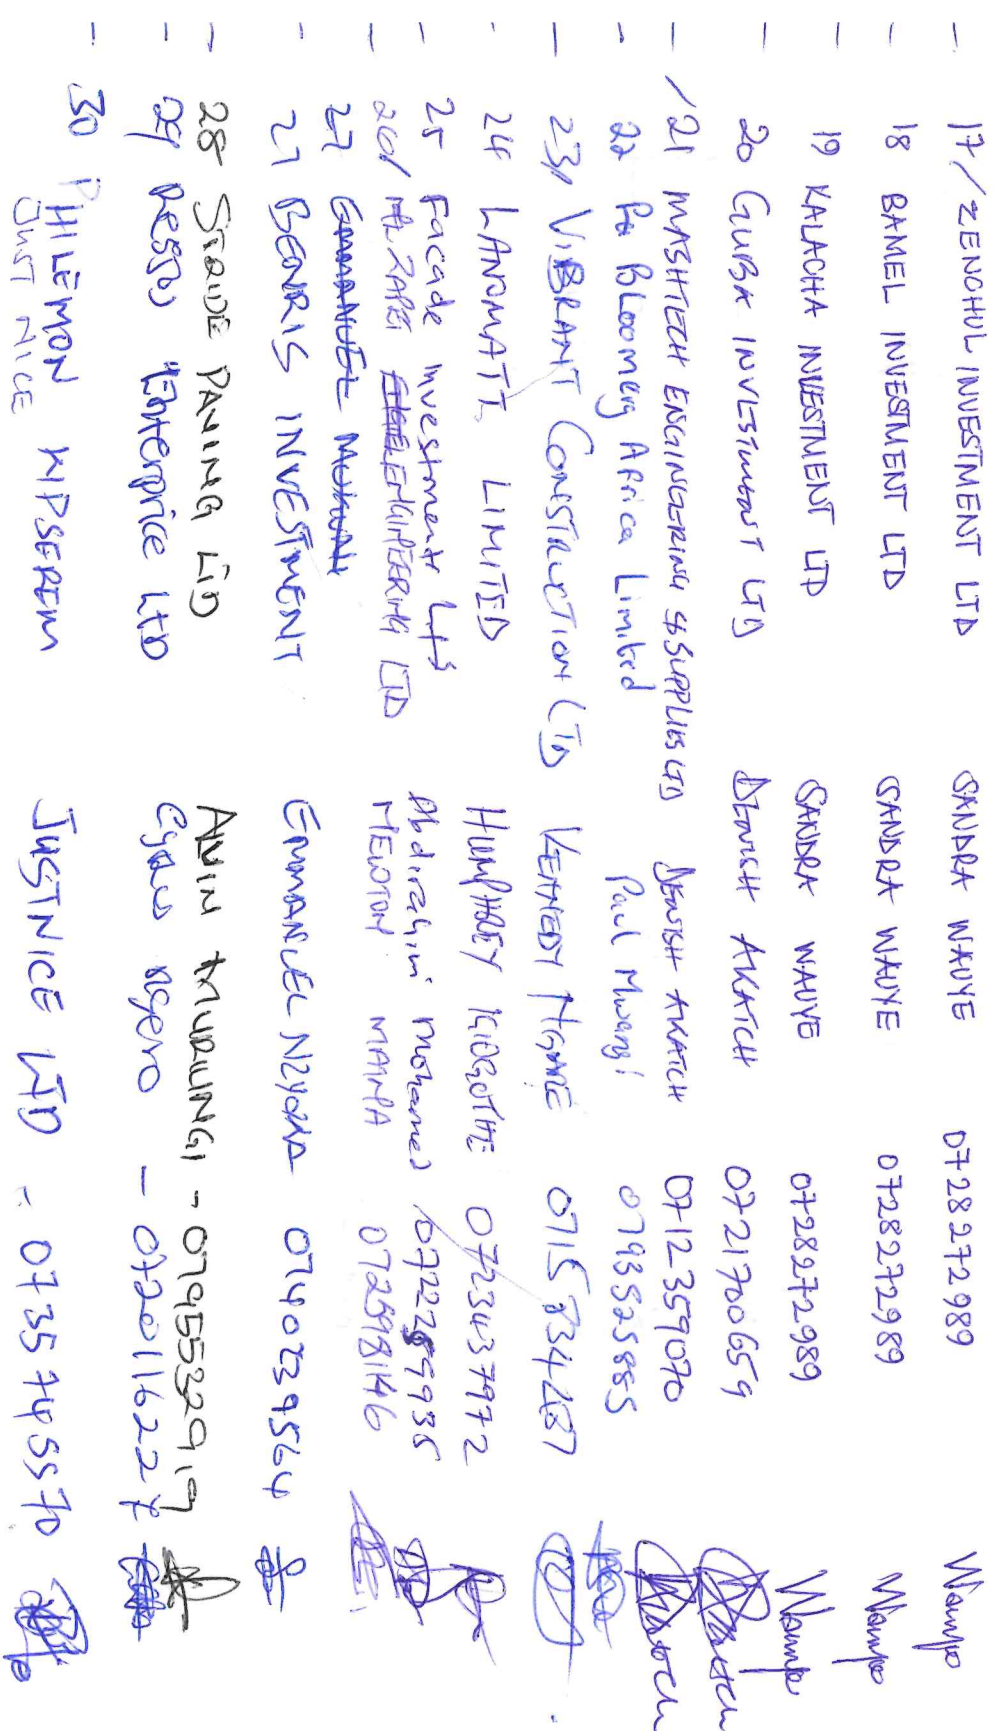 17/ ZENCHUL INVESTMENT LTD SANDRA WAUYE 0728272989
18 BAMEL INVESTMENT LTD SANDRA WAUYE 0728272989
19 KALACHA INVESTMENT LTD SANDRA WAUYE 0728272989
20 GUBA INVESTMENT LTD DENISH AKATCH 0721700659
/21 MASHTECH ENGINEERING & SUPPLIES LTD DENISH AKATCH 0712359070
22 Bloomerg Africa Limited Paul Mwangi 0793525885
23/ VIBRANT CONSTRUCTION LTD KENNEDY 0715834287
24 LANDMATT LIMITED HUMPHREY 0723437972
25 Facade investment Abdirahim mohamed
26/ ENGINEERING LTD NEWTON MAINA 0725981146
27 EMMANUEL
27 BENRIS INVESTMENT EMMANUEL 0740239564
28 PAVING LTD ALVIN MURIUNGI - 0795532919
29 Enterprice LTD - 0720116227
30 PHILEMON KIPSEREM JUSTNICE LTD - 0735745570
JUST NICE